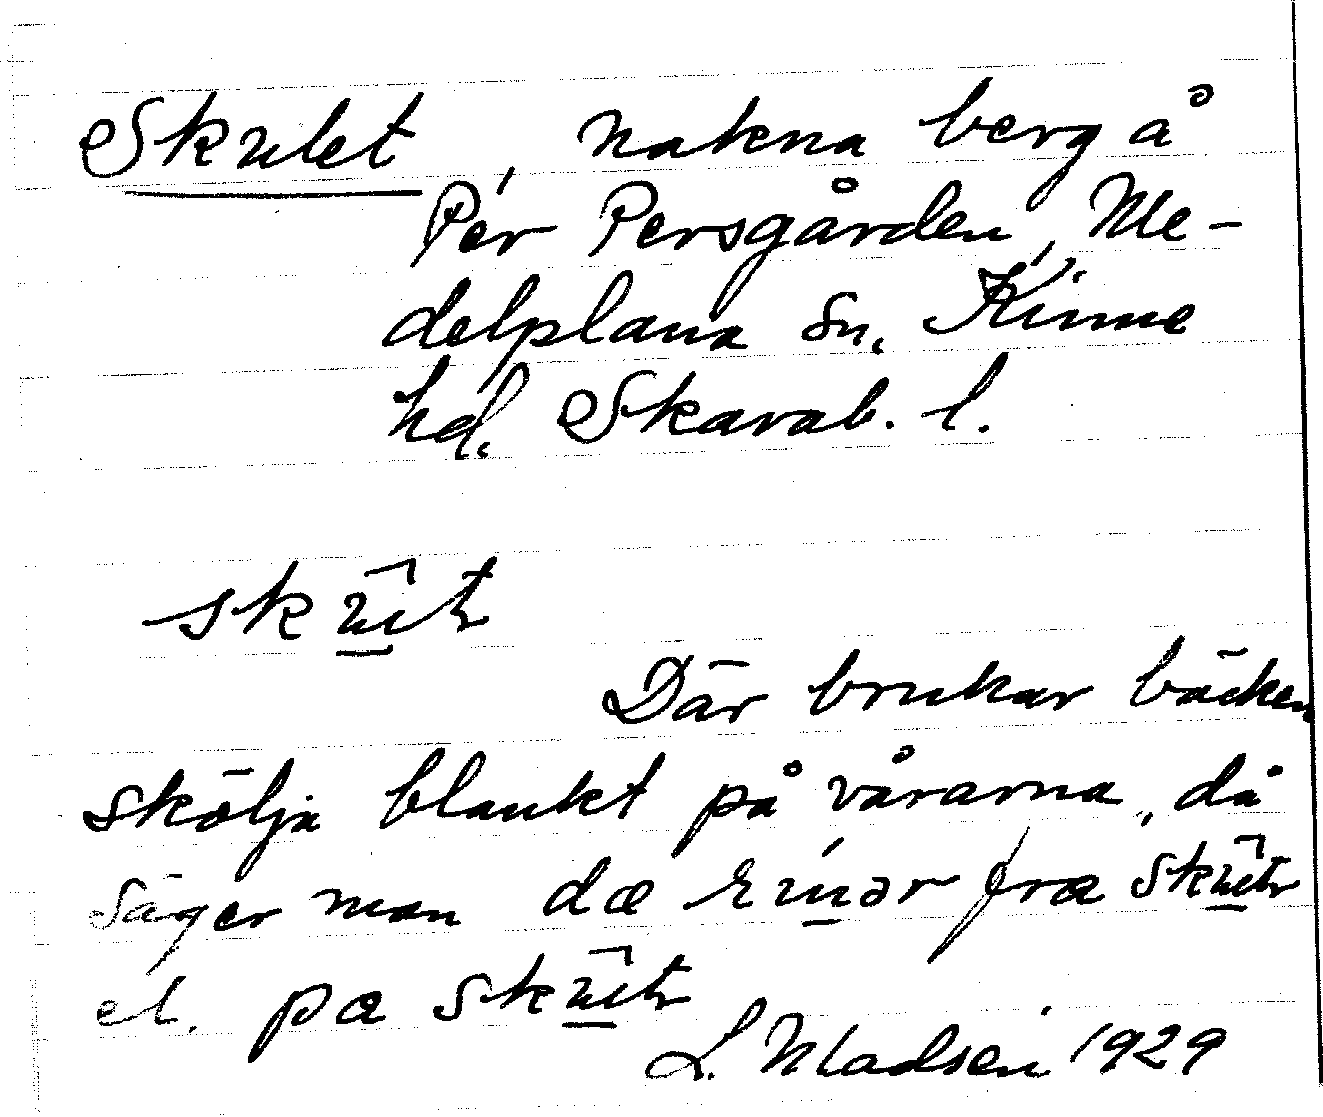 Skulet, nakna berg å
Per Persgården, Me-
delplana sn, Kinne
hd. Skarab. l.
Där brukar bäcken
skölja blankt på vårarna, då
säger man dæ fræ
el. pæ
L. Madsen 1929